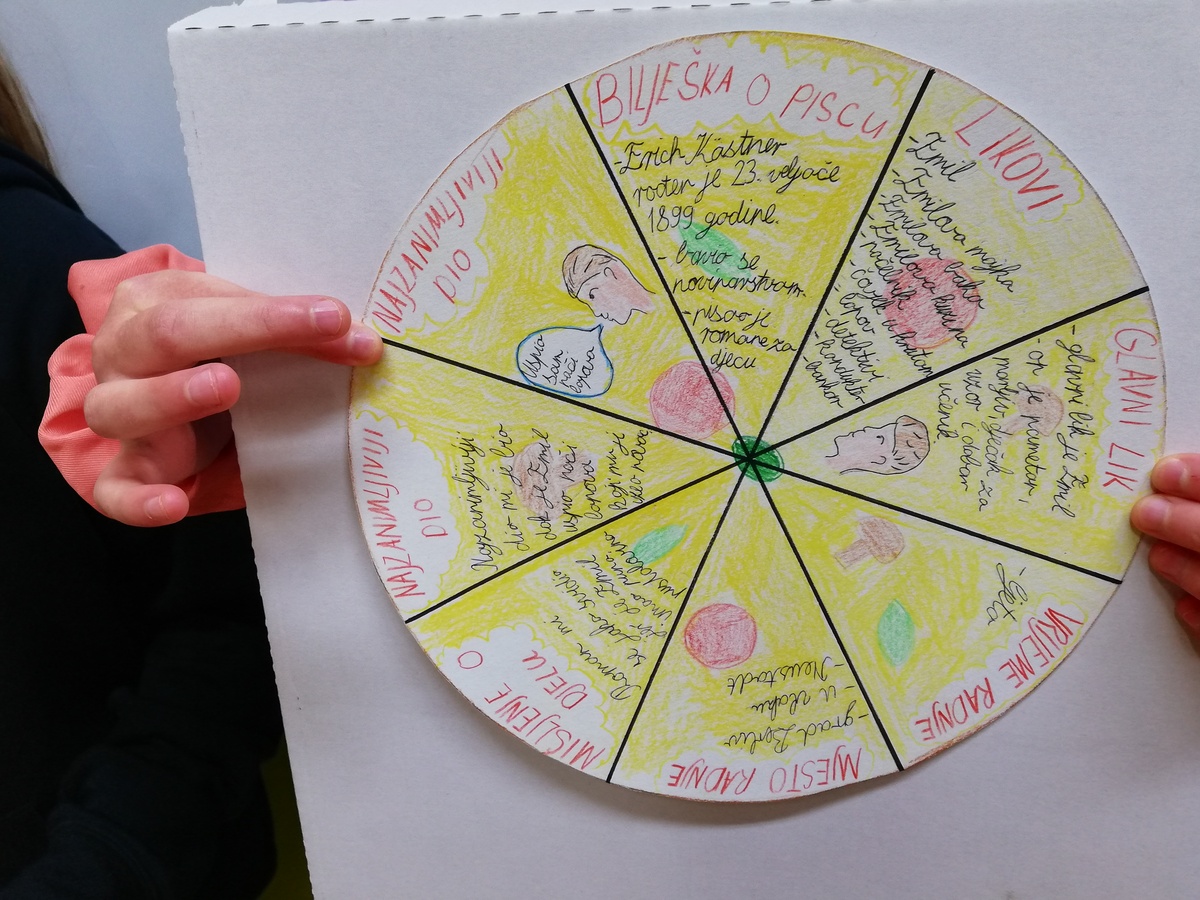 BILJEŠKA O PISCU
-Erich Kästner
rođen je 23. veljače
1899 godine.
- bavio se
novinarstvom.
-pisao je
romane za
djecu
LIKOVI
-Emil
-Emilova majka
-Emilova baka
-Emilova kuzina
-načelnik
-čovjek s
-lopov
-detektivi
-kondukter
-bankar
GLAVNI LIK
-glavni lik je Emil
-on je pametan,
dječak za
uzor i dobar
učenik
VRIJEME RADNJE
-ljeta
MJESTO RADNJE
-grad Berlin
-u vlaku
-Neustadt
MIŠLJENJE O
DJELU
Roman mi
se jako svidio
jer je Emil
imao puno
NAJZANIMLJIVIJI
DIO
Najzanimljiviji
dio mi je bio
dok je Emil
uspio naći
lopova
koji mu je
NAJZANIMLJIVIJI
DIO
Uspio
sam
naći
lopova